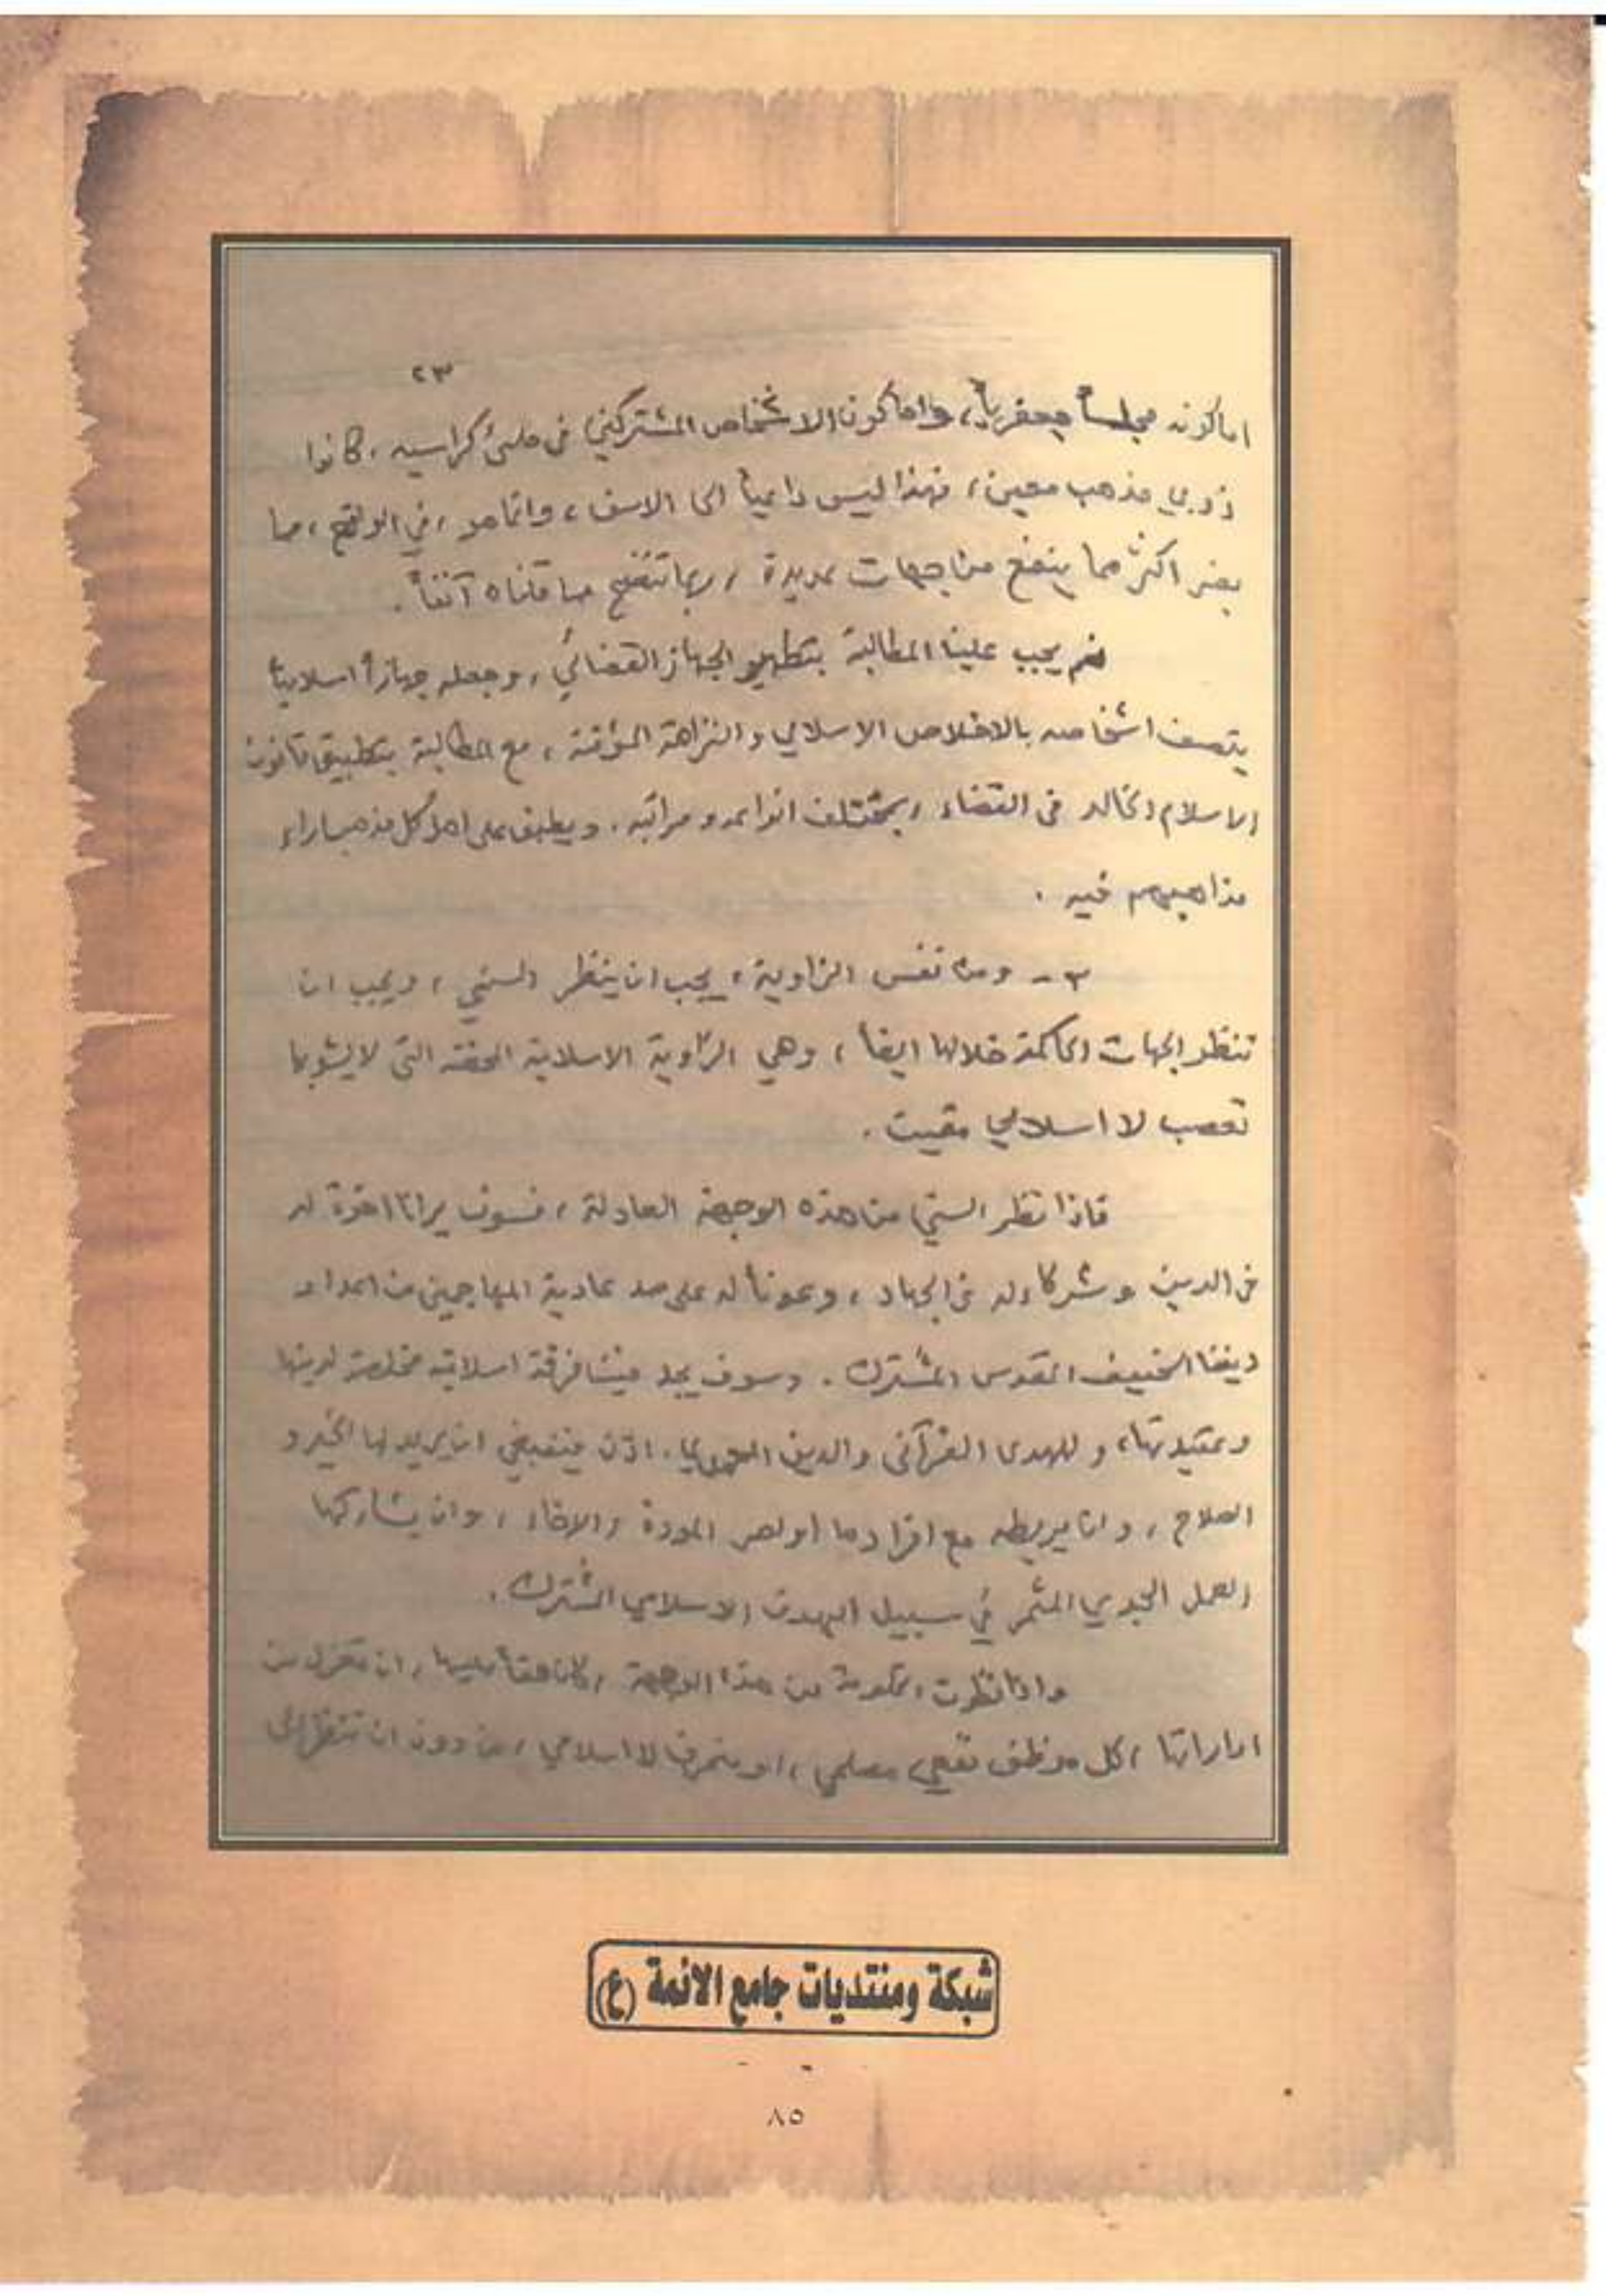 ٢٣
اما كونه مجلساً جعفرياً، واما كون الاشخاص المشتركين في ملئ كراسيه، كانوا
ذوي مذهب معين، فهذا ليس داعياً الى الاسف، وانما هو، في الواقع، مما
يضر اكثر مما ينفع من جهات عديدة، ربما تتضح مما قلناه آنفاً.
نعم يجب علينا المطالبة بتطهير الجهاز القضائي، وجعله جهازاً اسلامياً
يتصف اشخاصه بالاخلاص الاسلامي والنزاهة المؤقتة، مع المطالبة بتطبيق قانون
الاسلام الخالد في القضاء، بمختلف انواعه ومراتبه. ويطبق على اهل كل مذهب اراء
مذاهبهم فيه.
٣- ومن نفس الزاوية، يجب ان ينظر السني، ويجب ان
تنظر الجهات الحاكمة خلالها ايضاً، وهي الزاوية الاسلامية المحضة التي لا يشوبها
تعصب لا اسلامي مقيت.
فاذا نظر السني من هذه الوجهة العادلة، فسوف يرانا اخوة له
في الدين وشركاء له في الجهاد، وعوناً له على صد عادية المهاجمين من اعداء
ديننا الحنيف المقدس المشترك. وسوف يجد فينا فرقة اسلامية مخلصة لدينها
وعقيدتها، وللهدى القرآني والدين المحمدي. اذن فينبغي ان يريد لها الخير و
الصلاح، وان يربطه مع افرادها اواصر المودة والاخاء، وان يشاركها
العمل الجدي المثمر في سبيل الهدف الاسلامي المشترك.
واذا نظرت الحكومة من هذه الوجهة، كان حقاً عليها، ان تعزل من
اداراتها، كل موظف نفعي مصلحي، او منحرف لا اسلامي، من دون ان تنظر الى
شبكة ومنتديات جامع الائمة (ع)
٨٥